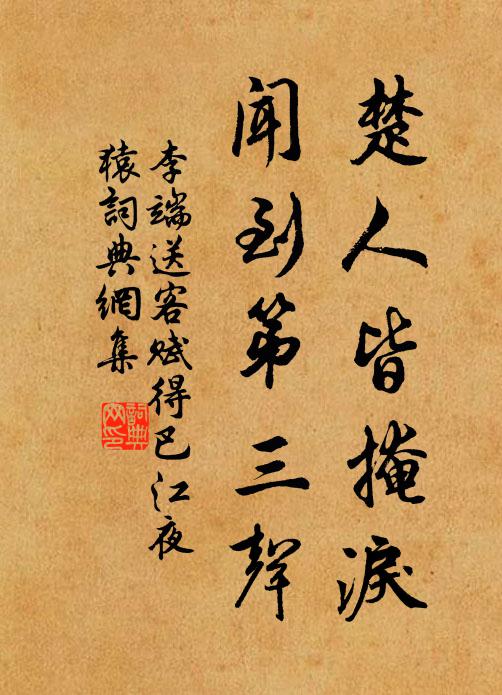 楚人皆掩淚
聞到第三聲
李端送客賦得巴江夜
猿詞典網集
詞典
网印